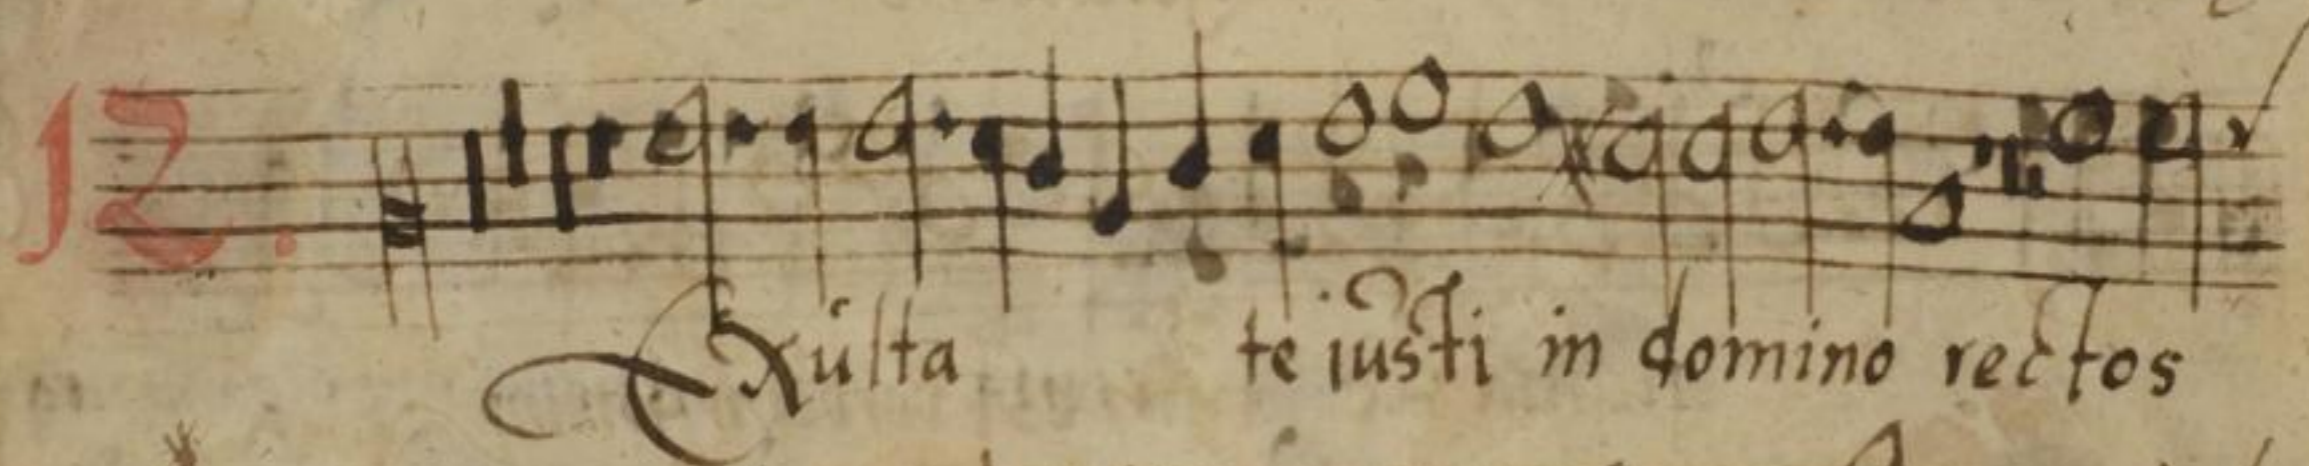 12.
Exulta te iusti in domino rectos